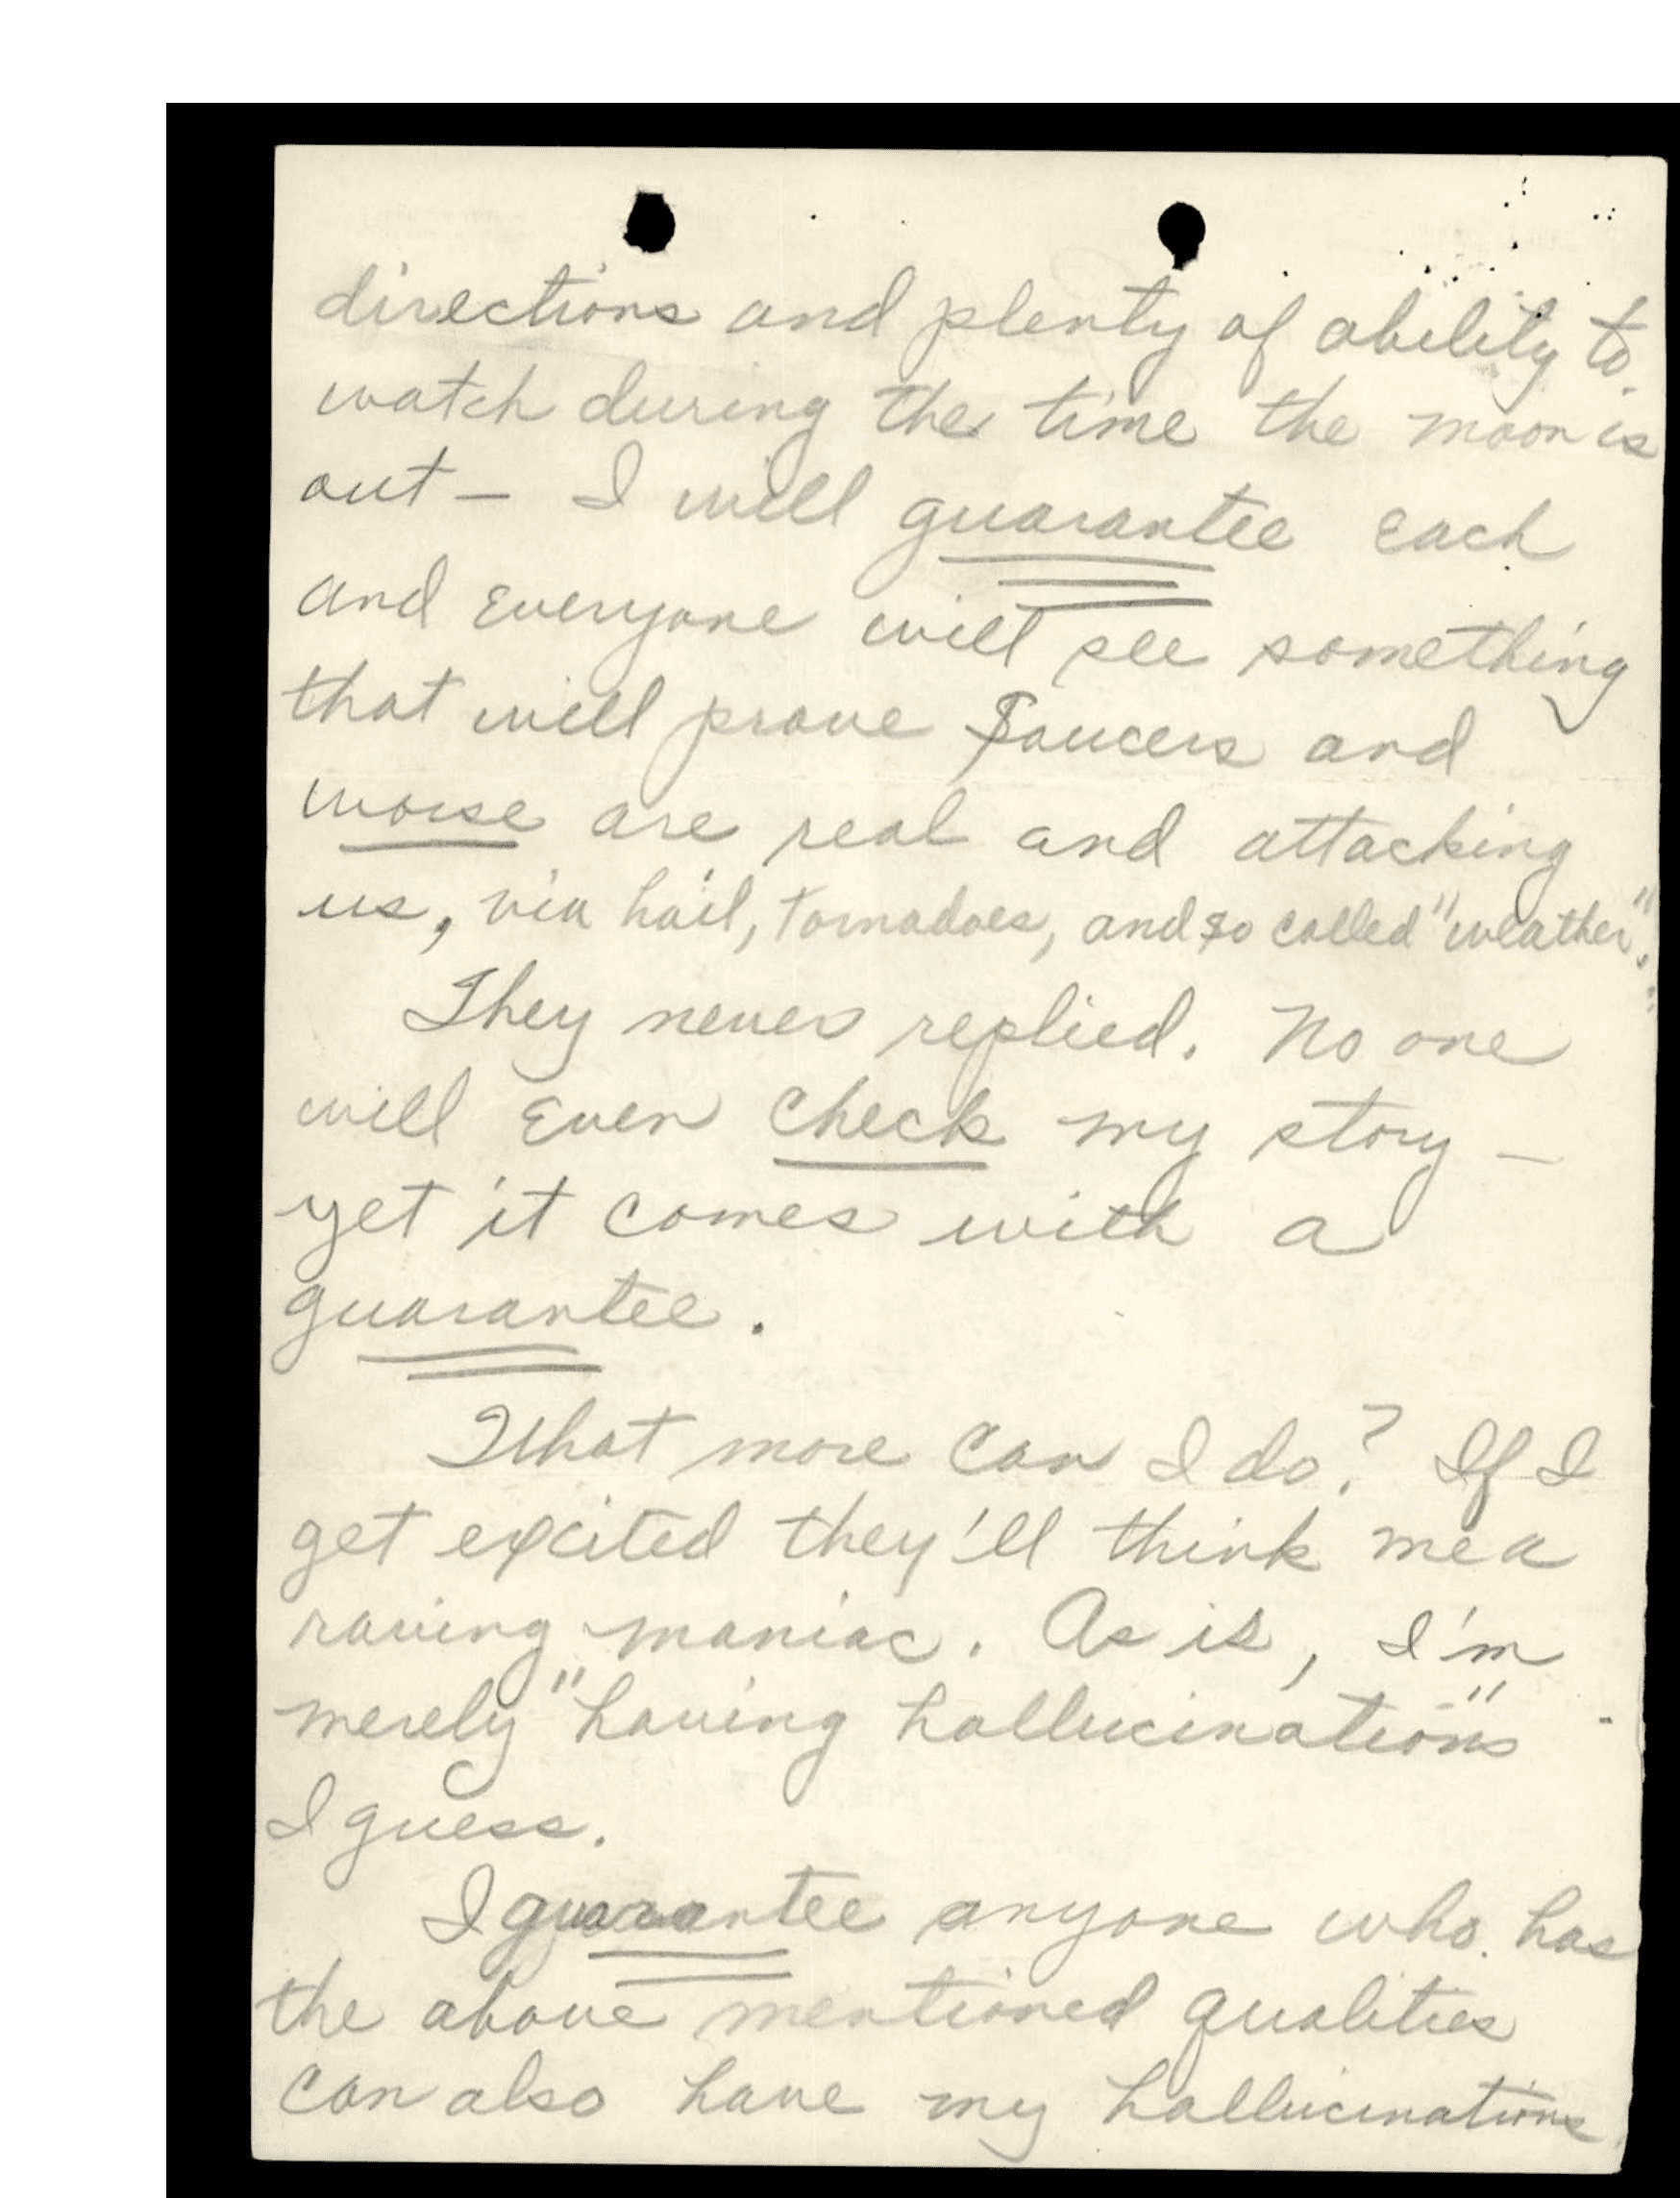 directions and plenty of ability to
watch during the time the moon is
out — I will guarantee each
and everyone will see something
that will prove Saucers and
worse are real and attacking
us, via hail, tornadoes, and so called "weather".
They never replied. No one
will even check my story —
yet it comes with a
guarantee.
What more can I do? If I
get excited they'll think me a
raving maniac. As is, I'm
merely "having hallucinations"
I guess.
I guarantee anyone who has
the above mentioned qualities
can also have my hallucinations